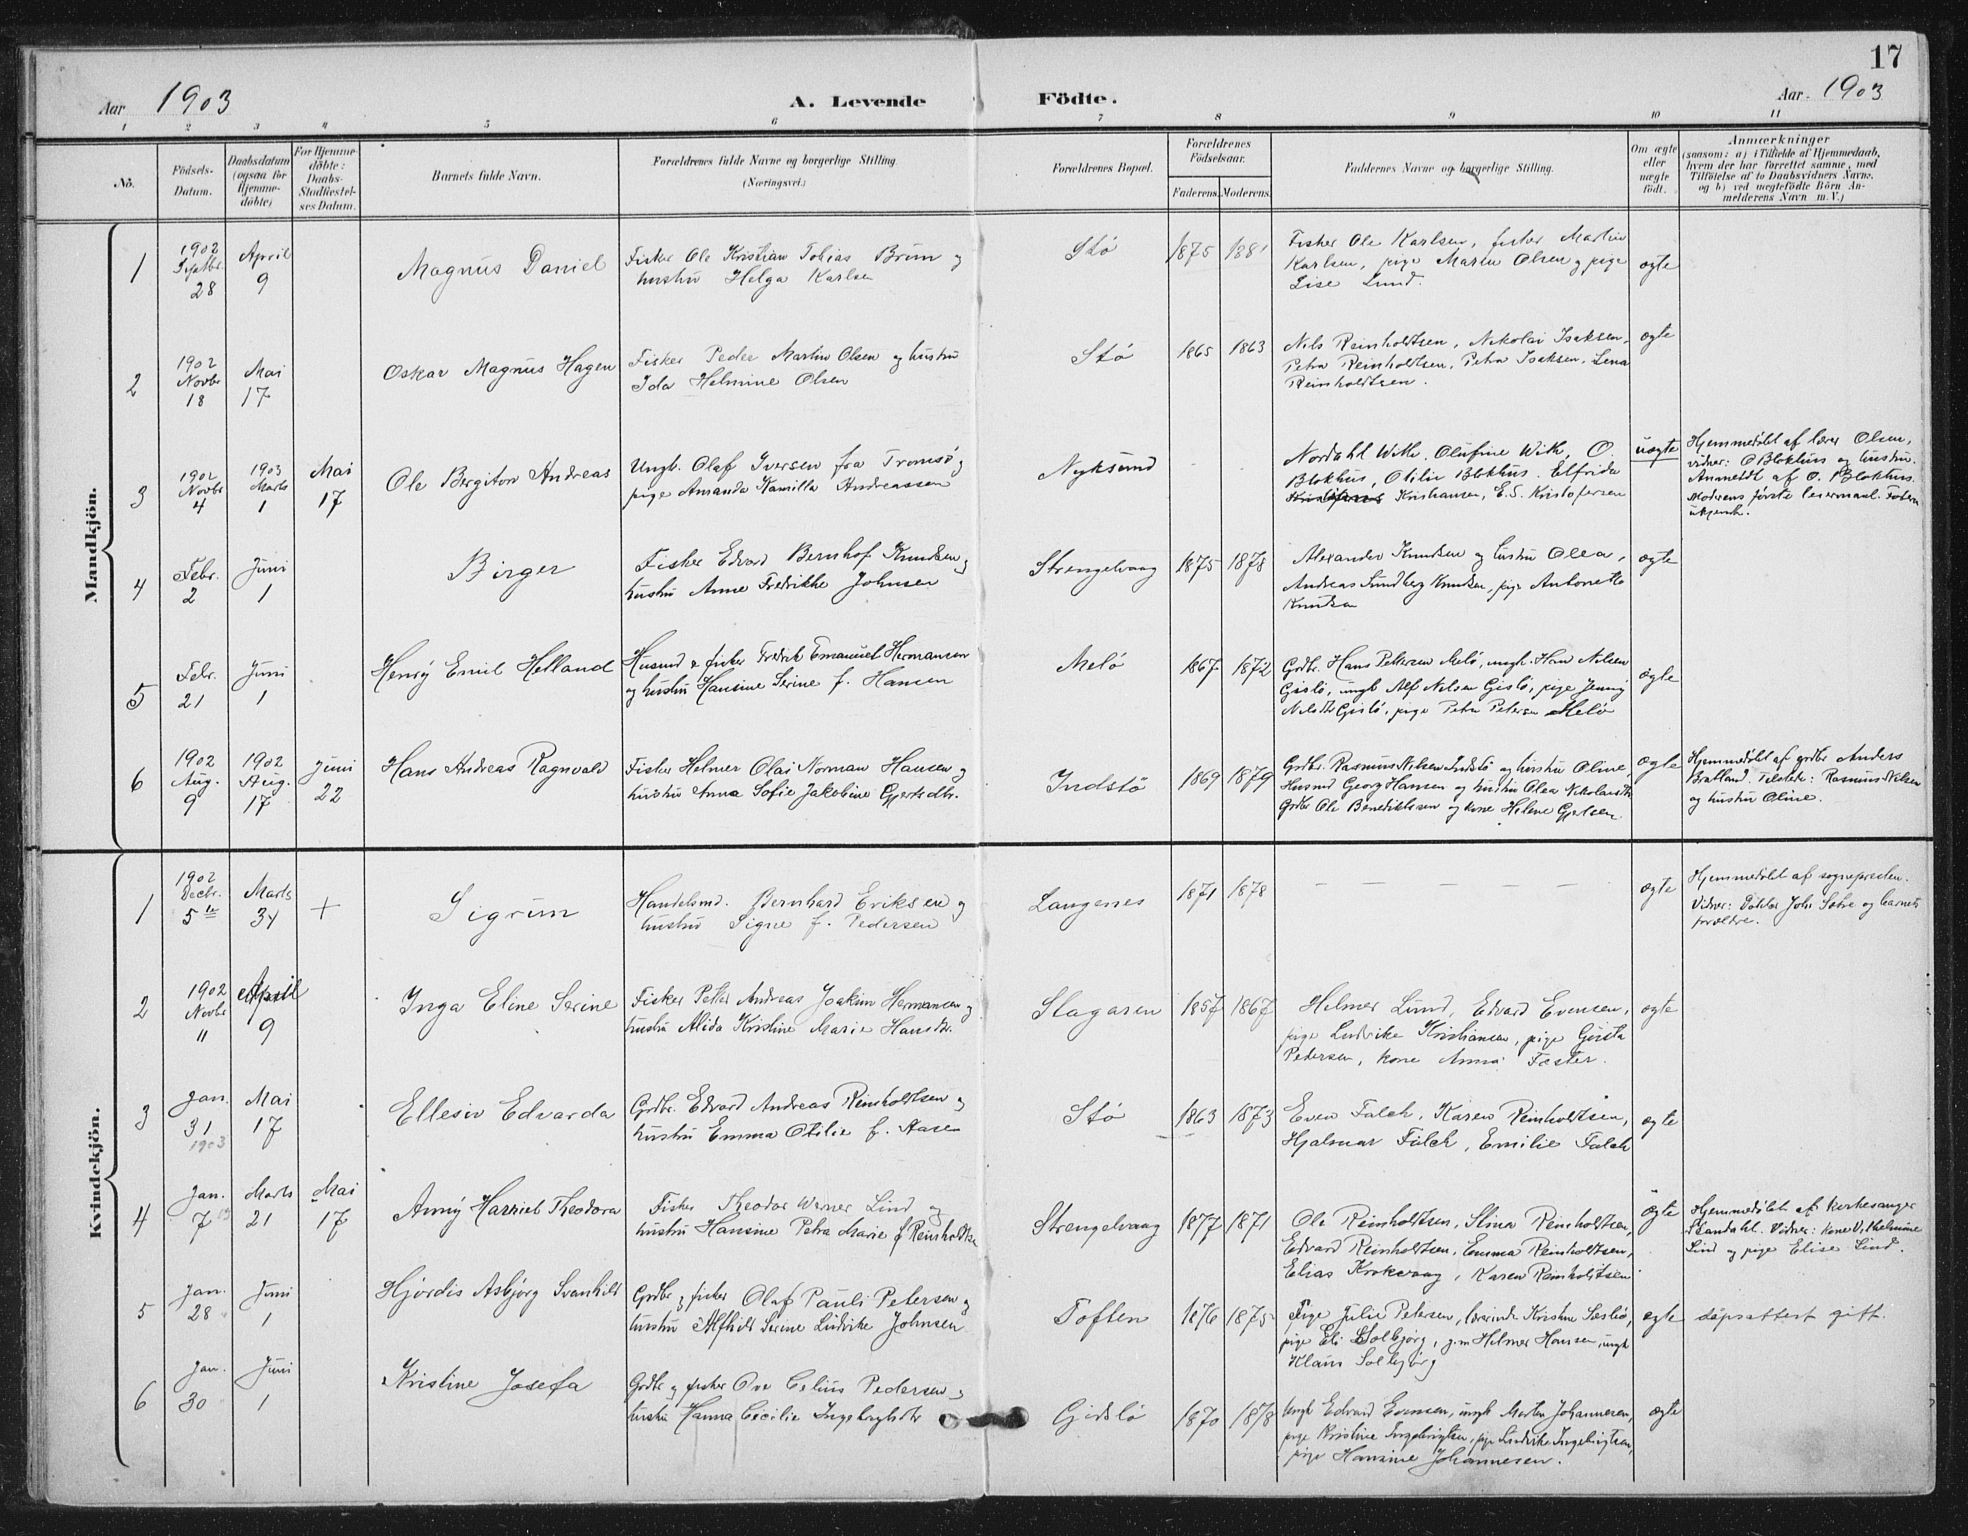 17
Aar 1903
A. Levende Födte.
Aar 1903
1 2 3 4 5 6 7 8 9 10 11
No.
Födsels-Datum.
Daabsdatum (ogsaa for Hjemme-döbte)
For Hjemme-döbte: Daabs-Stadfæstel-ses Datum.
Barnets fulde Navn.
Forældrenes fulde Navne og borgerlige Stilling. (Næringsvei.)
Forældrenes Bopæl.
Forældrenes Födselsaar.
Faderens. Moderens.
Faddernes Navne og borgerlige Stilling.
Om ægte eller uægte födt.
Anmærkninger
(saasom: a) i Tilfælde af Hjemmedaab,
hvem der har forrettet samme, med
Tilföielse af to Daabsvidners Navne,
og b) ved uægtefödte Börn An-
melderens Navn m. V.)
Mandkjön.
1
1902 Septbr. 28
April 9
Magnus Daniel
Fisker Ole Kristian Tobias Brun og
hustru Helga Karlsen
Stø
1875 1881
Fisker Ole Karlsen, fisker Martin
Karlsen, pige Maren Olsen og pige
Lise Lund.
ægte
2
1902 Novbr 18
Mai 17
Oskar Magnus Hagen
Fisker Peder Martin Olsen og hustru
Ida Helmine Olsen
Stø
1865 1863
Nils Reinholdtsen, Nikolai Isaksen,
Petra Reinholdtsen, Petra Isaksen, Lena
Reinholdtsen.
ægte
3
1902 Novbr 4
1903 Marts 1
Mai 17
Ole Bergiton Andreas
Ungk. Olaf Iversen fra Tromsø og
pige Amanda Kamilla Andreassen
Nyksund
Nordahl Wik, Olufine Wik, O.
Blokhus, Otilie Blokhus, Elfrida
Kristiansen, E.S. Kristofersen
uægte
Hjemmedøbt af lærer Olsen,
vidner: O Blokhus og hustru.
Anmeldt af O. Blokhus.
Moderens første leiermaal. Faderen
ukjendt.
4
Febr. 2
Juni 1
Birger
Fisker Edvard Bernhof Knudsen og
hustru Anne Fredrikke Johnsen
Strengelvaag
1875 1878
Alexander Knudsen og hustru Olea,
Andreas Lundberg Knudsen, pige Antonette
Knudsen
ægte
5
Febr. 21
Juni 1
Henrÿ Emil Helland
Husmd & fisker Fredrik Emanuel Hermansen
og hustru Hansine Serine f. Hansen
Melø
1867 1872
Grdbr. Hans Pettersen Melø, ungk. Hans Nilsen
Gislø, ungk Alf Nilsen Gislø, pige Jenny
Nilsdtr Gislø, pige Petra Petersen Melø
ægte
6
1902 Aug. 9
1902 Aug. 17
Juni 22
Hans Andreas Ragnvald
Fisker Helmer Olai Norman Hansen og
hustru Anna Sofie Jakobine Gjertsdtr.
Indstø
1869 1879
Grdbr. Rasmus Nilsen Indstø og hustru Oline,
Husmd Georg Hansen og hustru Olea Nikolaisdtr
Grdbr Ole Benediktsen og kone Helene Gjertsen
ægte
Hjemmedøbt af grdbr Anders
Bratland. Tilstede: Rasmus Nilsen
og hustru Oline.
Kvindekjön.
1
1902 Decbr. 5te
Marts 31
+
Sigrun
Handelsmd. Bernhard Eriksen og
hustru Signe f. Pedersen
Langenes
1871 1878
— — — — — —
ægte
Hjemmedøbt af sognepresten.
Vidner: Joh. Sætre og barnets
forældre.
2
1902 Novbr 11
April 9
Inga Eline Serine
Fisker Peter Andreas Joakim Hermansen og
hustru Alida Kristine Marie Hansdtr.
Slagaren
1857 1867
Helmer Lund, Edvard Evensen,
pige Ludvike Kristiansen, pige Gusta
Pedersen, kone Anna Foster.
ægte
3
Jan. 31 1903
Mai 17
Ellesiv Edvarda
Grdbr. Edvard Andreas Reinholdtsen og
hustru Emma Otilie f. Aasen
Stø
1863 1873
Even Falch, Karen Reinholdtsen,
Hjalmar Falch, Emilie Falch
ægte
4
Jan. 7 03
Marts 21
Mai 17
Annÿ Harriet Theodora
Fisker Theodor Werner Lind og
hustru Hansine Petra Marie f. Reinholdts.
Strengelvaag
1877 1871
Ole Reinholdtsen, Stina Reinholdtsen,
Edvard Reinholdtsen, Emma Reinholdtsen,
Elias Krokvaag, Karen Reinholdtsen
ægte
Hjemmedøbt af kirkesanger
Sandahl. Vidner: kone Vilhelmine
Lind og pige Elise Lind.
5
Jan. 28
Juni 1
Hjørdis Asbjørg Svanhild
Grdbr og fisker Olaf Pauli Petersen og
hustru Alfhild Serine Ludvike Johnsen
Toften
1876 1875
Pige Julie Petersen, lærerinde Kristine Sæslø,
pige Eli Solbjørg, g.m Helmer Hansen, ungk
Klaus Solbjørg
ægte
dåpsattest gitt.
6
Jan. 30
Juni 1
Kristine Josefa
Grdbr og fisker Ove Celius Pedersen og
hustru Hanna Cecilie Ingebrigtsdtr
Gidslø
1870 1878
Ungk Edvard Evensen, ungk Martin Johannesen,
pige Kristine Ingebrigtsen, pige Ludvike Ingebrigtsen,
pige Hansine Johannesen.
ægte